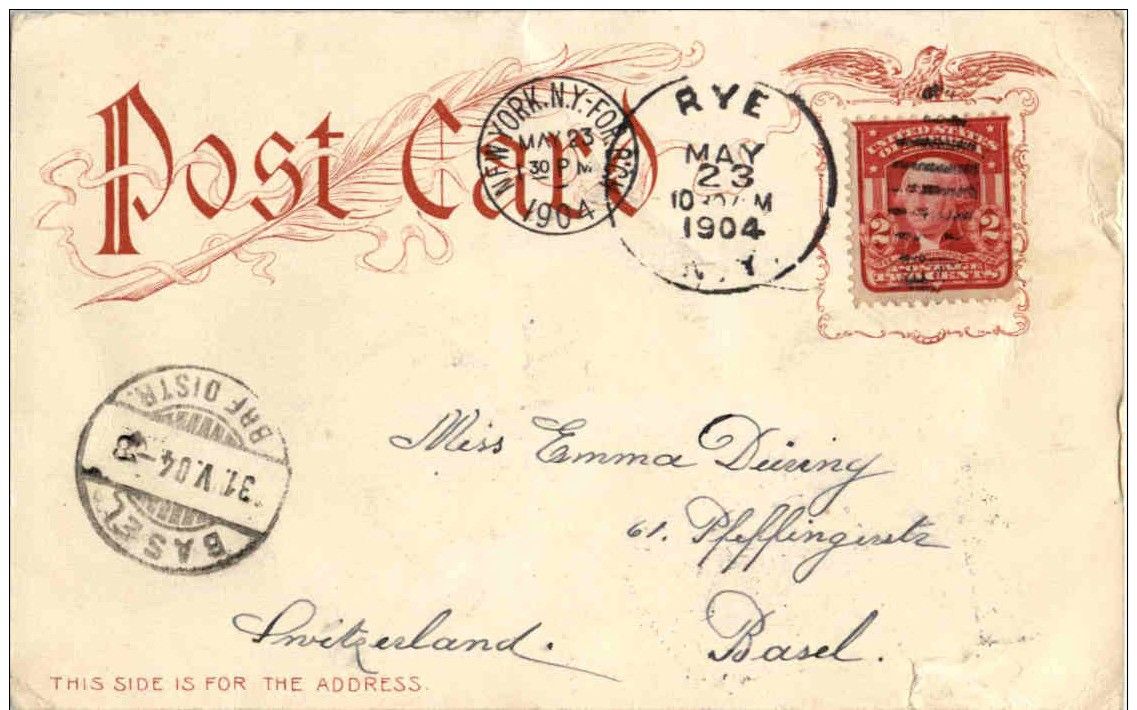 Post Card
NEW YORK, N.Y.-FOR. B.S.
MAY 23
30 PM
1904
RYE
MAY
23
10 30 AM
1904
N.Y.
UNITED STATES
2 2
BRF. DISTR.
31.V.04.-8
BASEL
Miss Emma Düring
61. Pfeffingerstr
Switzerland. Basel.
THIS SIDE IS FOR THE ADDRESS.